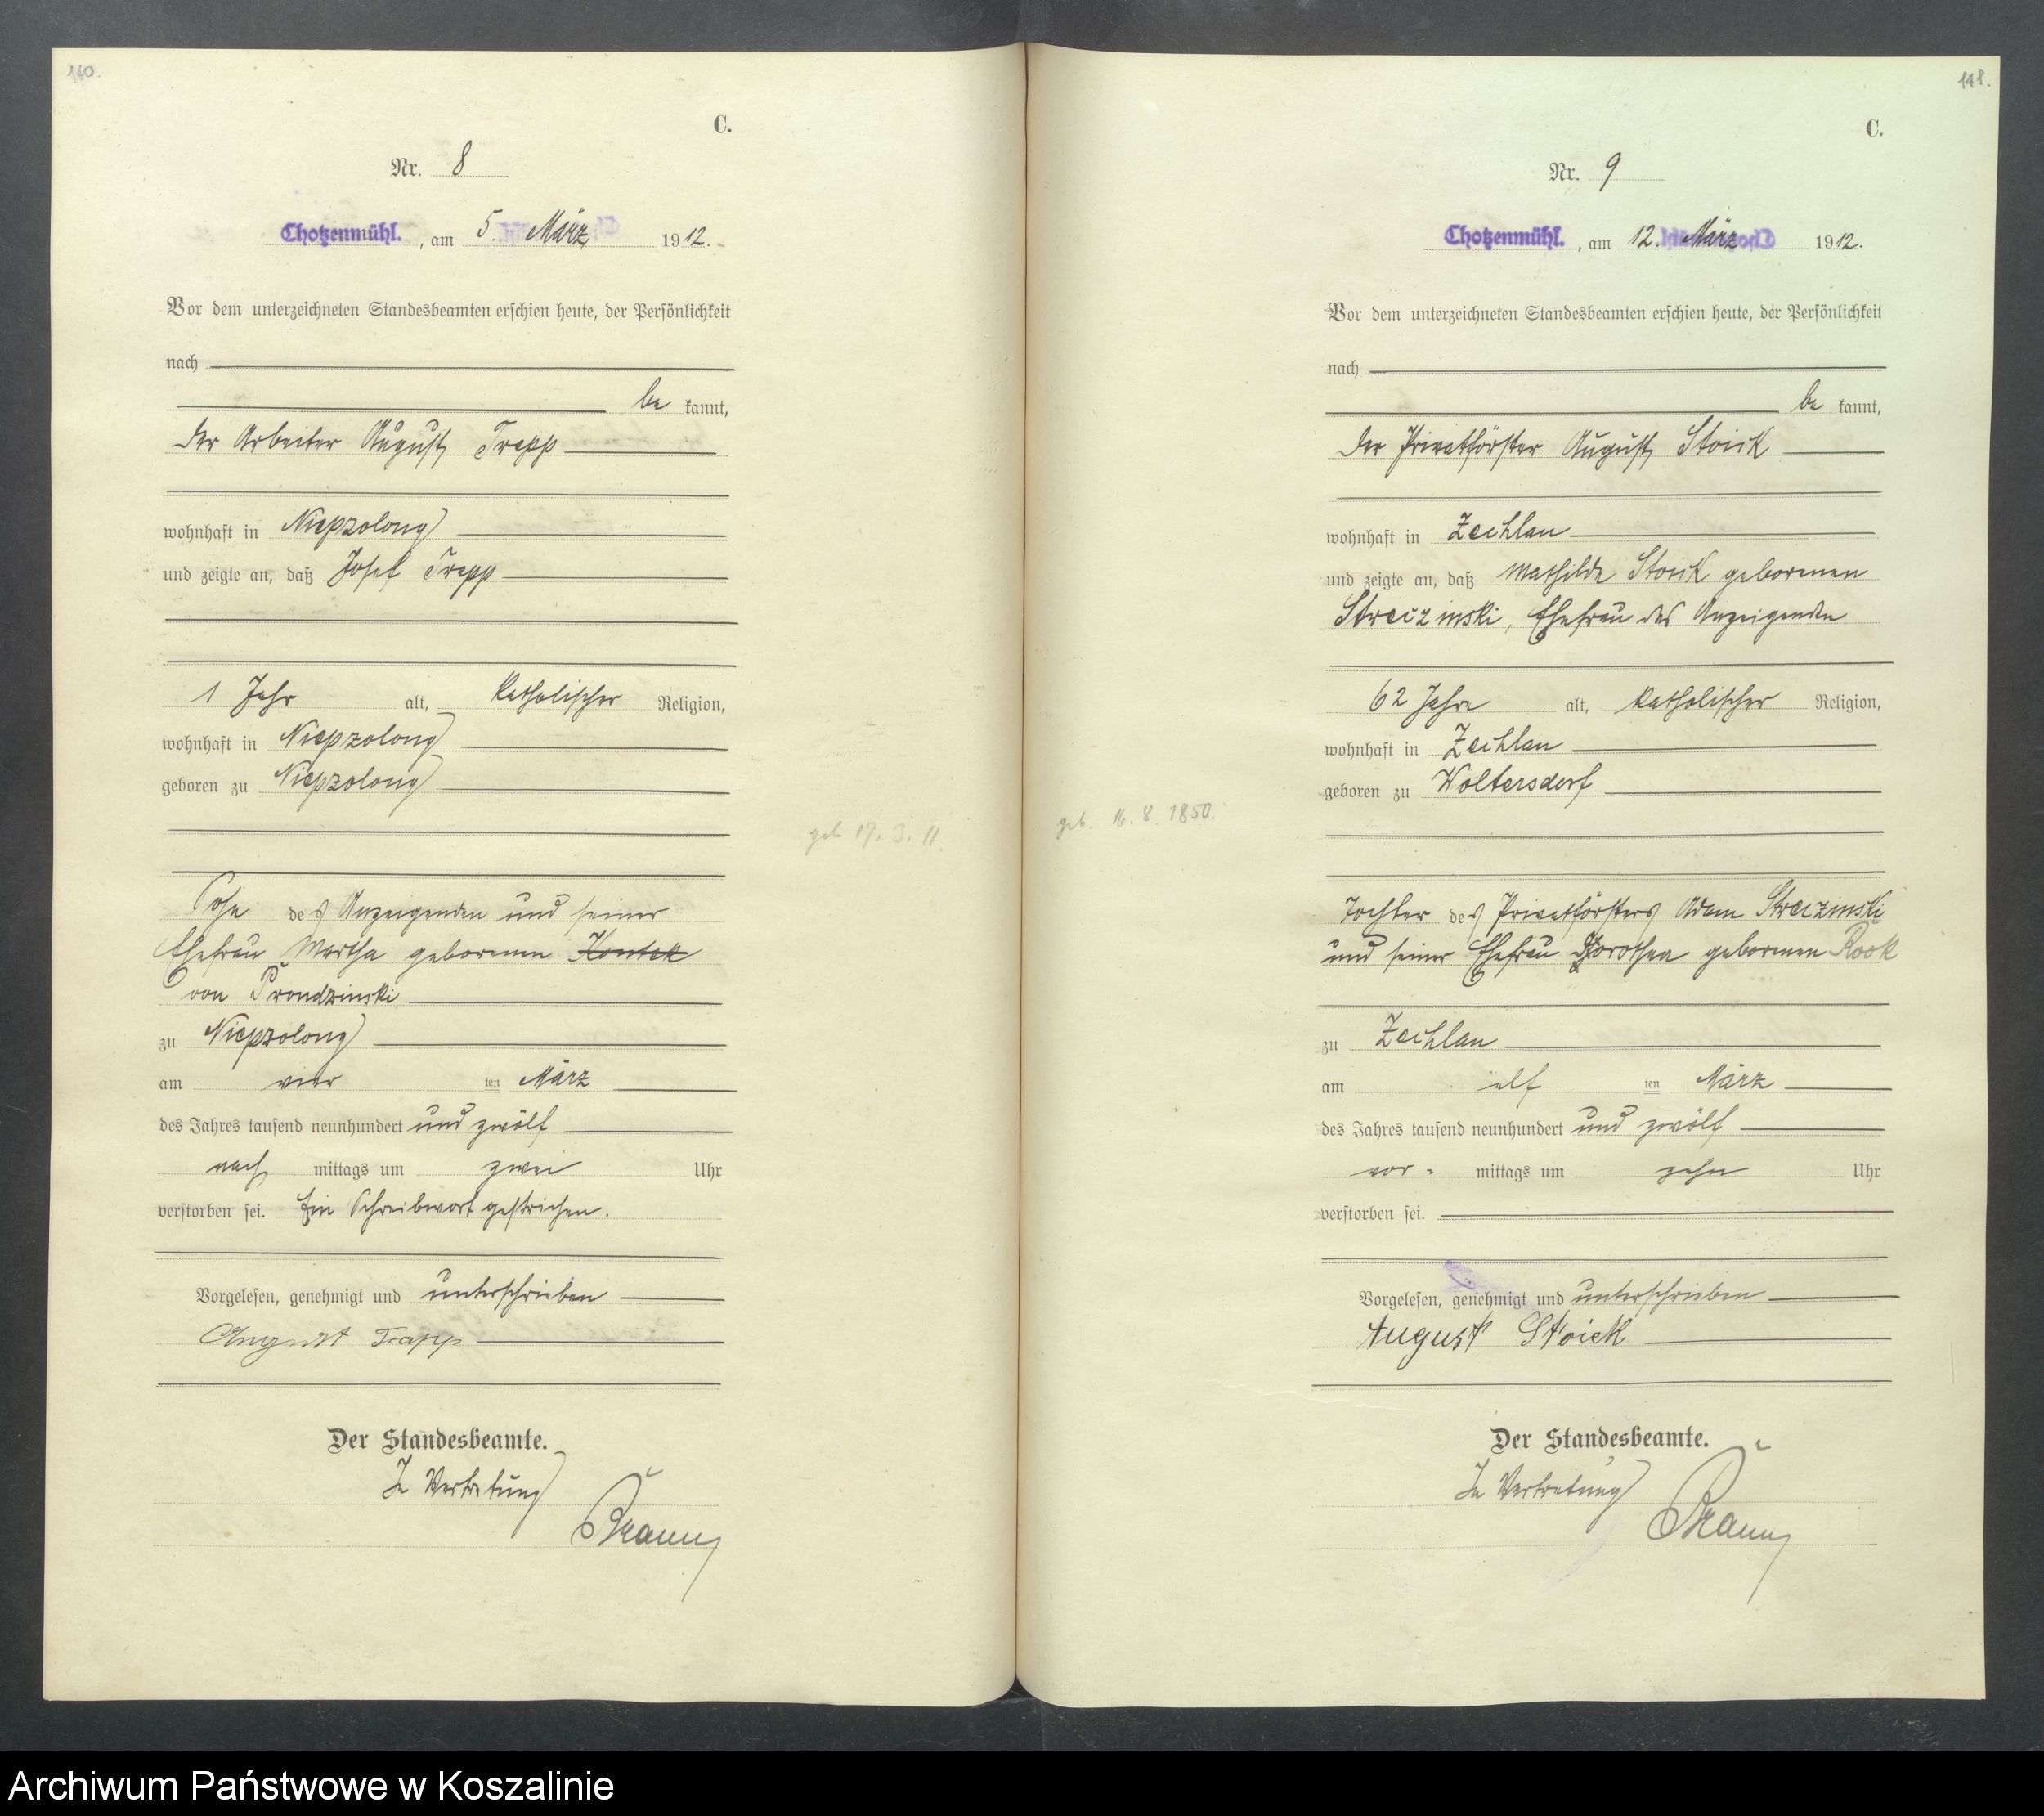 140.
C.
Nr. 8
Chotzenmühl. , am 5. März 1912.
Vor dem unterzeichneten Standesbeamten erschien heute, der Persönlichkeit
nach
be kannt,
der Arbeiter August Trapp
wohnhaft in Niepzolong
und zeigte an, daß Josef Trapp
1 Jahr alt, katholischer Religion,
wohnhaft in Niepzolong
geboren zu Niepzolong
geb 17. 3. 11.
Sohn des Anzeigenden und seiner
Ehefrau Martha geborenen Kontek
von Prondzinski
zu Niepzolong
am vier ten März
des Jahres tausend neunhundert und zwölf
nach mittags um zwei Uhr
verstorben sei. Ein Schreibwort gestrichen.
Vorgelesen, genehmigt und unterschrieben
August Trapp
Der Standesbeamte.
In Vertretung
Braun
141.
C.
Nr. 9
Chotzenmühl. , am 12. März 1912.
Vor dem unterzeichneten Standesbeamten erschien heute, der Persönlichkeit
nach
be kannt,
der Privatförster August Stoick
wohnhaft in Zechlau
und zeigte an, daß Mathilde Stoick geborenen
Streczinski, Ehefrau des Anzeigenden
62 Jahre alt, katholischer Religion,
wohnhaft in Zechlau
geboren zu Woltersdorf
geb. 16. 8. 1850.
Tochter des Privatförsters Adam Streczinski
und seiner Ehefrau Dorothea geborenen Rook
zu Zechlau
am elf ten März
des Jahres tausend neunhundert und zwölf
vor- mittags um zehn Uhr
verstorben sei.
Vorgelesen, genehmigt und unterschrieben
August Stoick
Der Standesbeamte.
In Vertretung
Braun
Archiwum Państwowe w Koszalinie